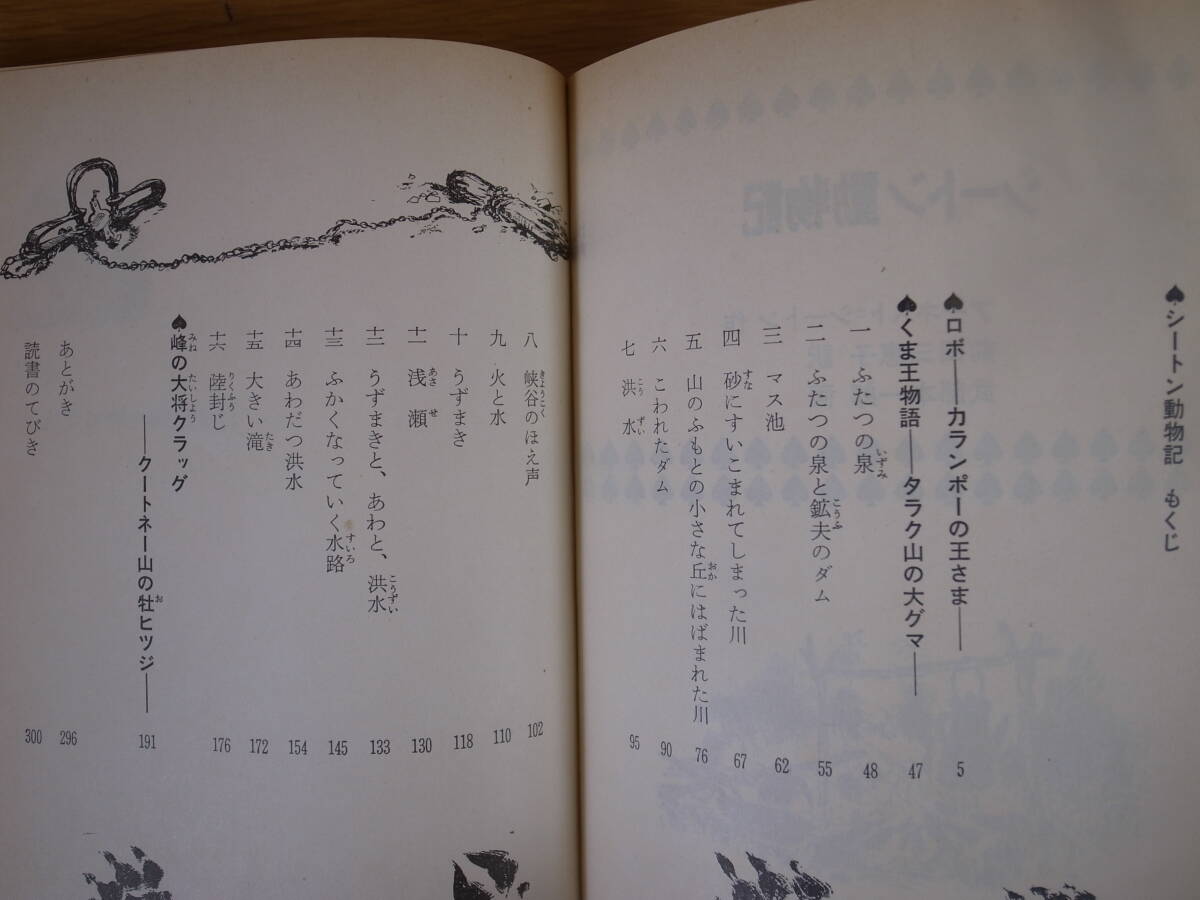 ♠シートン動物記　もくじ
♠ロボ——カランポーの王さま—— 5
♠くま王物語——タラク山の大グマ—— 47
一　ふたつの泉 48
二　ふたつの泉と鉱夫のダム 55
三　マス池 62
四　砂にすいこまれてしまった川 67
五　山のふもとの小さな丘にはばまれた川 76
六　こわれたダム 90
七　洪水 95
八　峡谷のほえ声 102
九　火と水 110
十　うずまき 118
十一　浅瀬 130
十二　うずまきと、あわと、洪水 133
十三　ふかくなっていく水路 145
十四　あわだつ洪水 154
十五　大きい滝 172
十六　陸封じ 176
♠峰の大将クラッグ
——クートネー山の牡ヒツジ—— 191
あとがき 296
読書のてびき 300